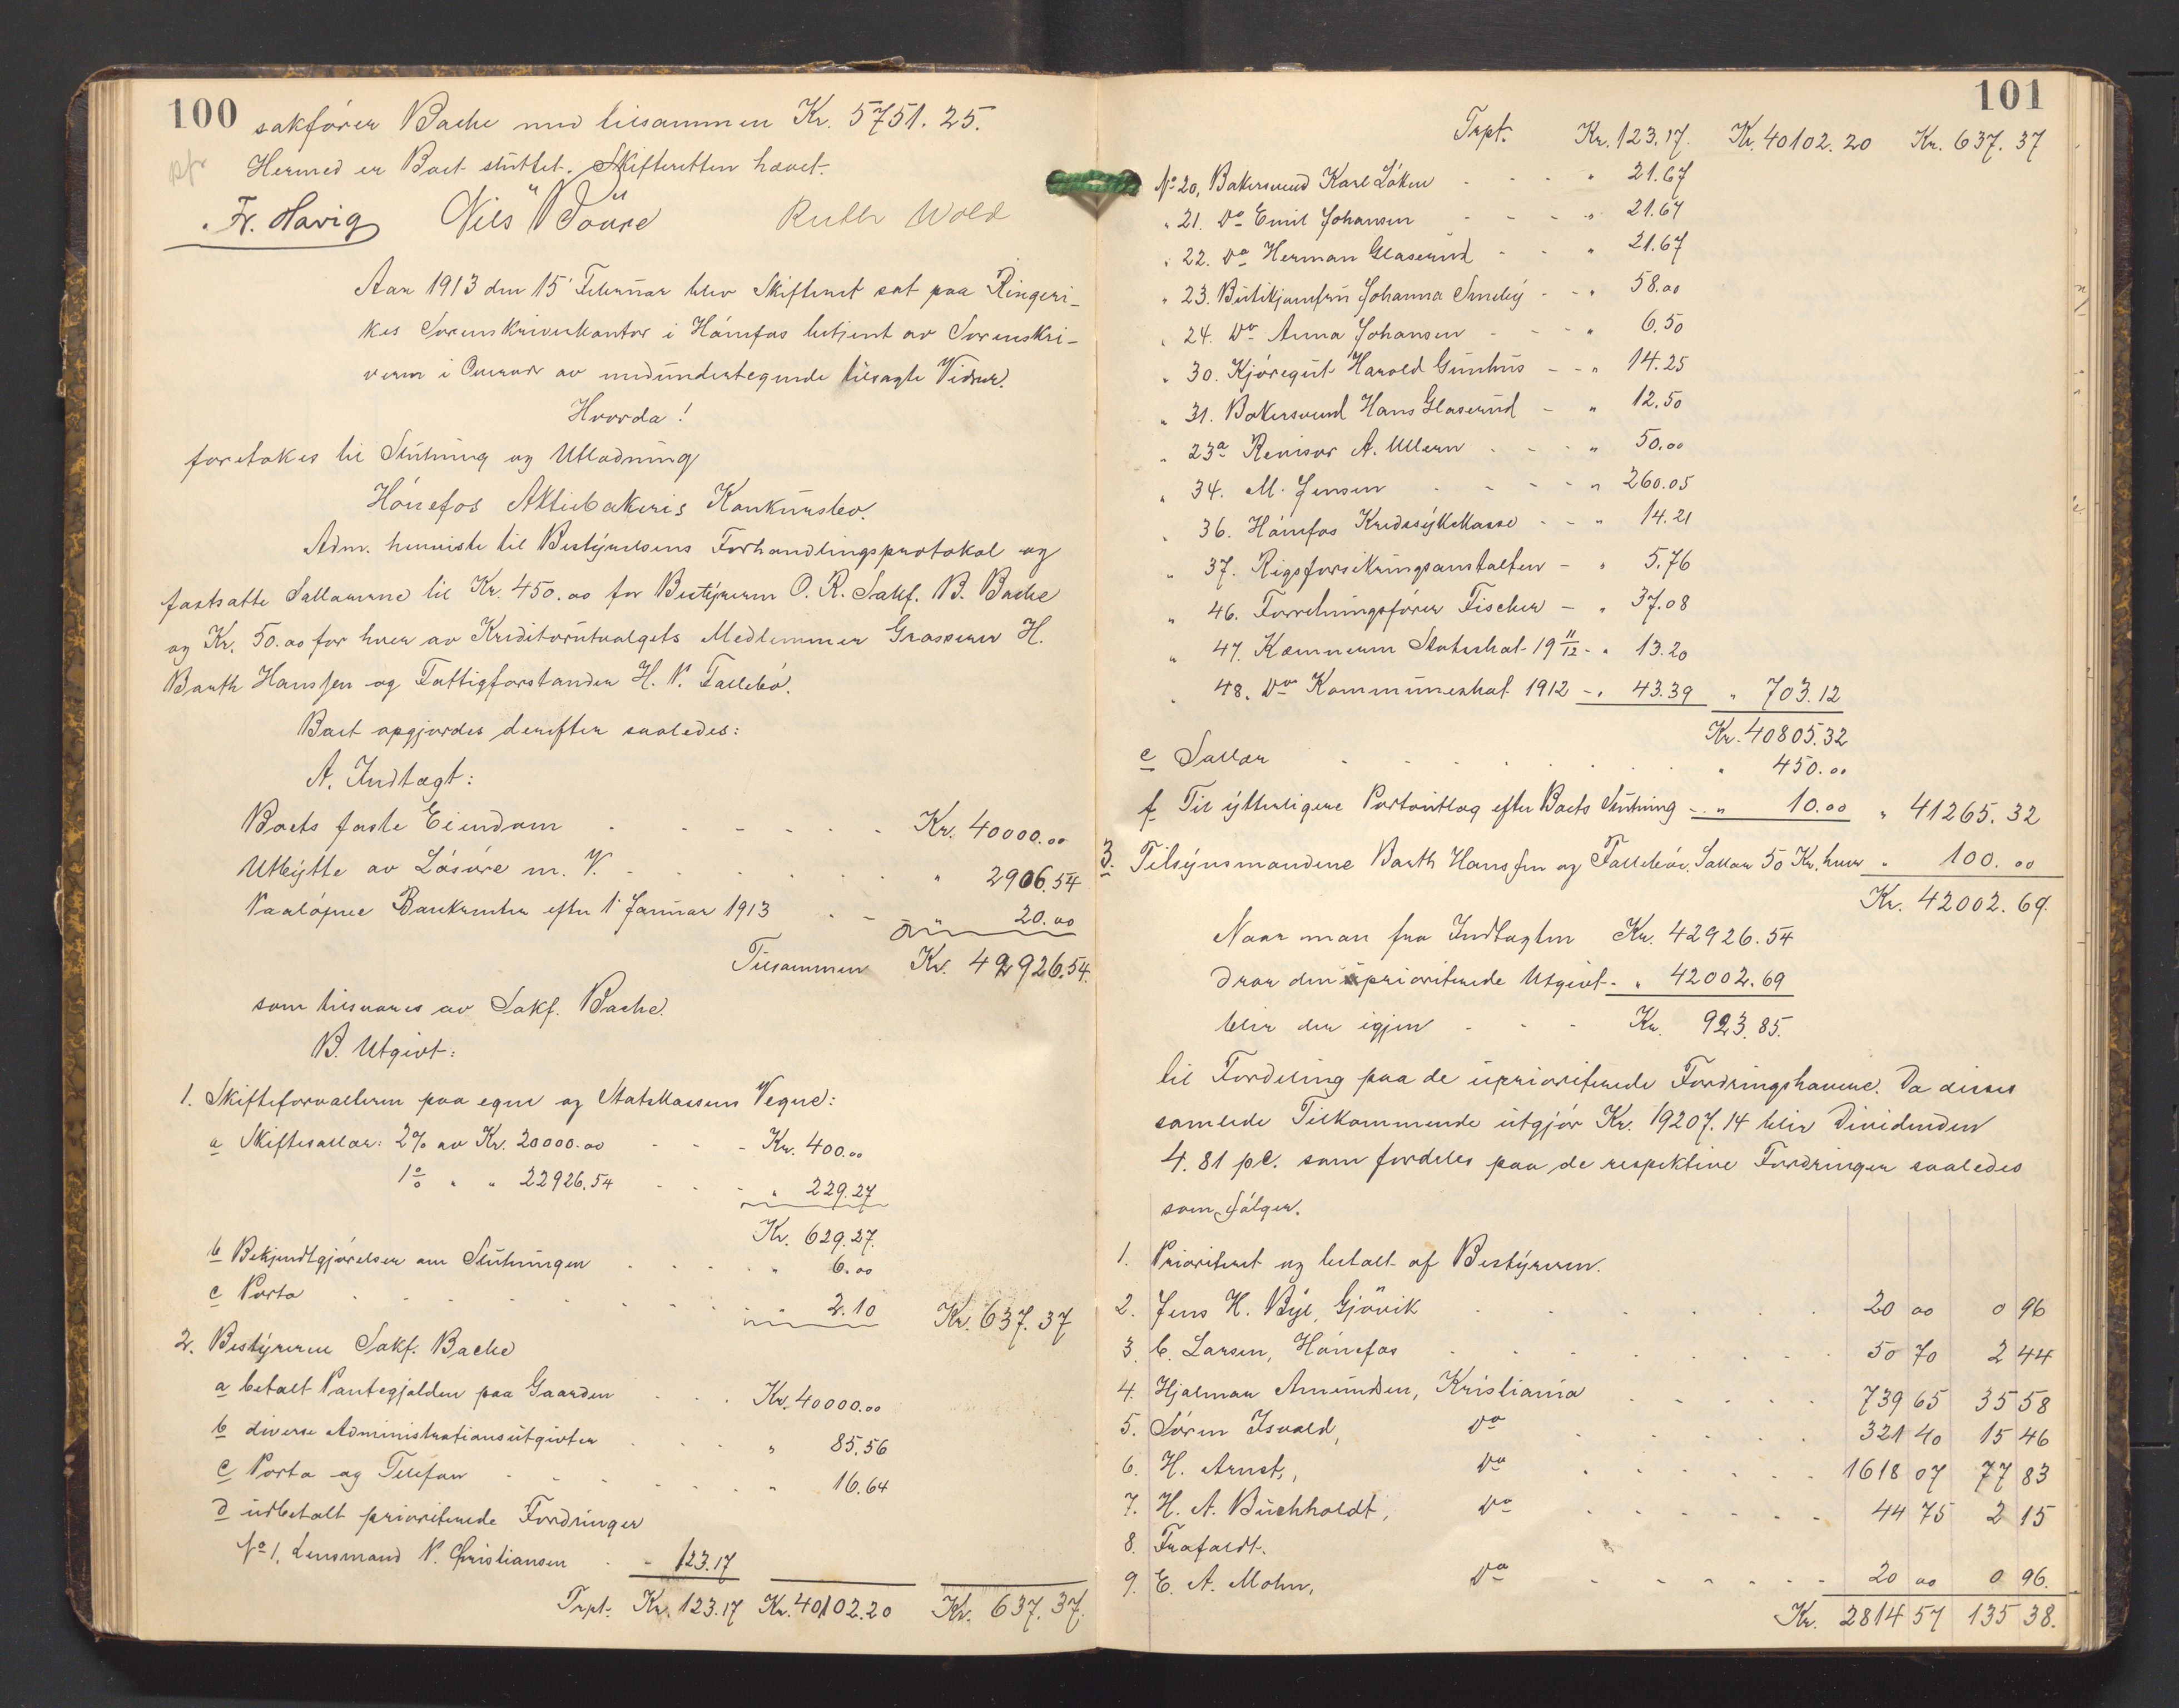 100
sakfører Bache med tilsammen Kr. 5751.25.
Hermed er Boet sluttet. Skifteretten hævet.
Fr. Havig Nils Ruth Wold
Aar 1913 den 15 Februar blev Skifteret sat paa Ringeri-
kes Sorenskriverkontor i Hønefos betjent av Sorenskri-
veren i Overvær av medundertegnede tilsagte Vidner.
Hvorda!
foretokes til Slutning og Utlodning
Hønefos Aktiebakeris Konkursbo.
Adm. henviste til Bestyrelsens Forhandlingsprotokol og
fastsatte Sallarerne til Kr. 450.00 for Bestyreren O. R. Sakf. B. Bache
og Kr. 50.00 for hver av Kreditorutvalgets Medlemmer Grosserer H.
Barth Hanssen og Fattigforstander H. P. Follebø.
Boet opgjordes derefter saaledes:
A. Indtægt:
Boets faste Eiendom Kr. 40000.00
Utbytte av Løsøre m. V. " 2906.54
Paaløpne Bankrenter efter 1 Januar 1913 " 20.00
Tilsammen Kr. 42926.54.
som tilsvares av Sakf. Bache.
B. Utgivt:
1. Skifteforvalteren paa egne og Statskassens Vegne:
a Skiftesallar: 2% av Kr. 20000.00 Kr. 400.00
1% " " 22926.54 " 229.27
Kr. 629.27.
b Bekjendtgjørelser om Slutningen " 6.00
c Porto " 2.10 Kr. 637.37
2. Bestyreren Sakf. Bache
a betalt Pantegjælden paa Gaarden Kr. 40000.00
b diverse Administrationsutgivter " 85.56
c Porto og Telefon " 16.64
d utbetalt prioriterede Fordringer
No 1, Lensmand P. Christiansen - 123.17
Trpt. Kr. 123.17 Kr. 40102.20 Kr. 637.37.
101
Trpt. Kr. 123.17. Kr. 40102.20 Kr. 637.37
No 20, Bakersvend Karl Løken " 21.67
" 21. Do Emil Johansen " 21.67
" 22. Do Herman Glaserud " 21.67
" 23. Butikjomfru Johanna Smeby " 58.00
" 24. Do Anna Johansen " 6.50
" 30. Kjøregut Harald Gunhus " 14.25
" 31. Bakersvend Hans Glaserud " 12.50
" 23a Revisor A. Ullern " 50.00
" 34. M. Jensen " 260.05
" 36. Hønefos Kredssykekasse " 14.21
" 37. Rigsforsikringsanstalten " 5.76
" 46. Forretningsfører Fischer " 37.08
" 47. Kæmneren Statsskat 19 11/12 " 13.20
" 48. Do Kommuneskat 1912 " 43.39 " 703.12
Kr. 40805.32
e Sallær " 450.00
f Til ytterligere Portoutlæg efter Boets Slutning " 10.00 " 41265.32
3. Tilsynsmændene Barth Hanssen og Follebø, Sallær 50 Kr. hver " 100.00
Kr. 42002.69.
Naar man fra Indtægten Kr. 42926.54
drar den prioriterede Utgivt " 42002.69
blir der igjen Kr. 923.85.
til Fordeling paa de uprioriterede Fordringshavere. Da disses
samlede Tilkommende utgjør Kr. 19207.14 blir Dividenden
4.81 pc. som fordeles paa de respektive Fordringer saaledes
som følger.
1. Prioriteret og betalt af Bestyreren.
2. Jens H. Bye, Gjøvik 20 00 0 96
3. C. Larsen, Hønefos 50 70 2 44
4. Hjalmar Amundsen, Kristiania 739 65 35 58
5. Søren Isvald, Do 321 40 15 46
6. H. Arnst, Do 1618 07 77 83
7. H. A. Buchholdt, Do 44 75 2 15
8. Frafaldt.
9. E. A. Mohn, Do 20 00 0 96.
Kr. 2814 57 135 38.